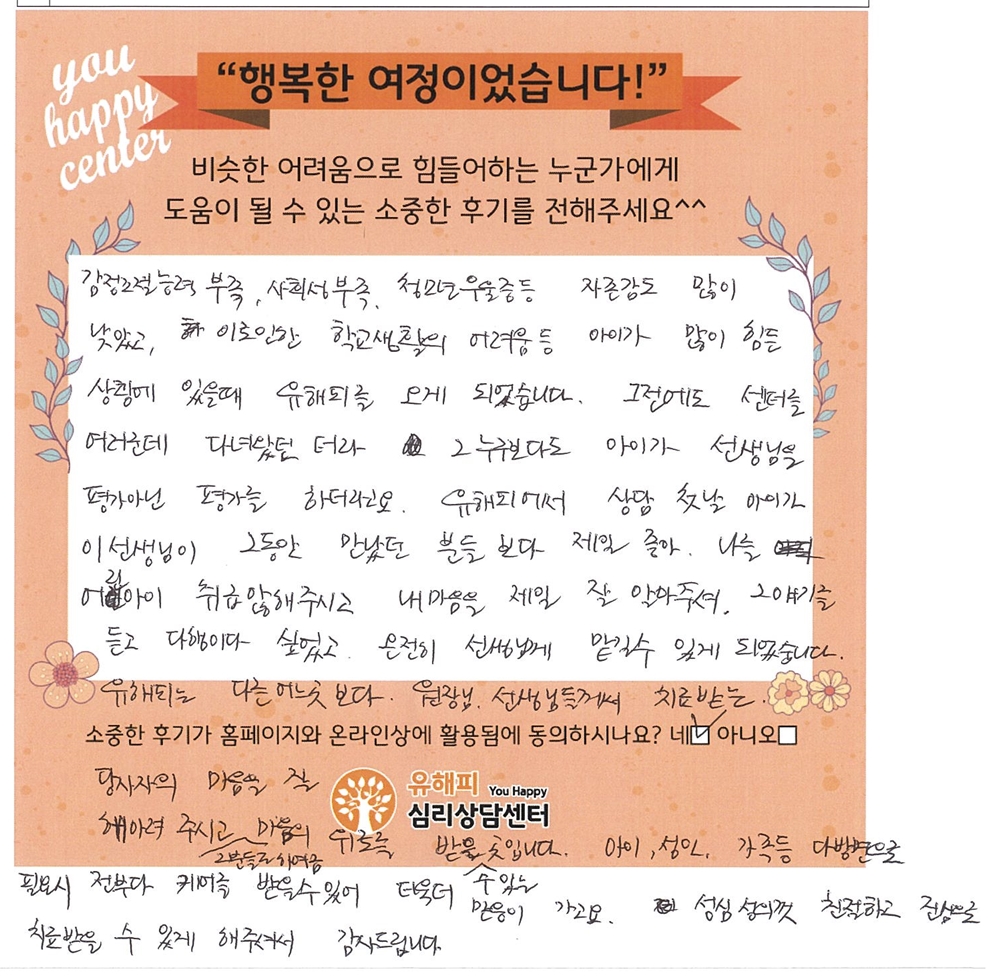 you
happy
center
“행복한 여정이었습니다!”
비슷한 어려움으로 힘들어하는 누군가에게
도움이 될 수 있는 소중한 후기를 전해주세요^^
감정조절능력 부족, 사회성부족, 청소년우울증등 자존감도 많이
낮았고, 이로인한 학교생활의 어려움등 아이가 많이 힘든
상황에 있을때 유해피를 오게 되었습니다. 그전에도 센터를
여러군데 다녀왔던 터라 그 누구보다도 아이가 선생님을
평가아닌 평가를 하더라고요. 유해피에서 상담 첫날 아이가
이 선생님이 그동안 만났던 분들 보다 제일 좋아. 나를
어린아이 취급않해주시고 내마음을 제일 잘 알아주셔. 그얘기를
듣고 다행이다 싶었고. 온전히 선생님께 맡길수 있게 되었습니다.
유해피는 다른 어느곳 보다. 원장님. 선생님들께서 치료받는.
소중한 후기가 홈페이지와 온라인상에 활용됨에 동의하시나요? 네☑ 아니오□
당사자의 마음을 잘
유해피 You Happy
심리상담센터
헤아려 주시고 마음의 위로를 받을 수 있는 곳입니다. 아이, 성인, 가족등 다방면으로
그분들로 하여금
필요시 전부다 케어를 받을수있어 더욱더 믿음이 가고요. 성심 성의껏 친절하고 진심으로
치료받을 수 있게 해주셔서 감사드립니다